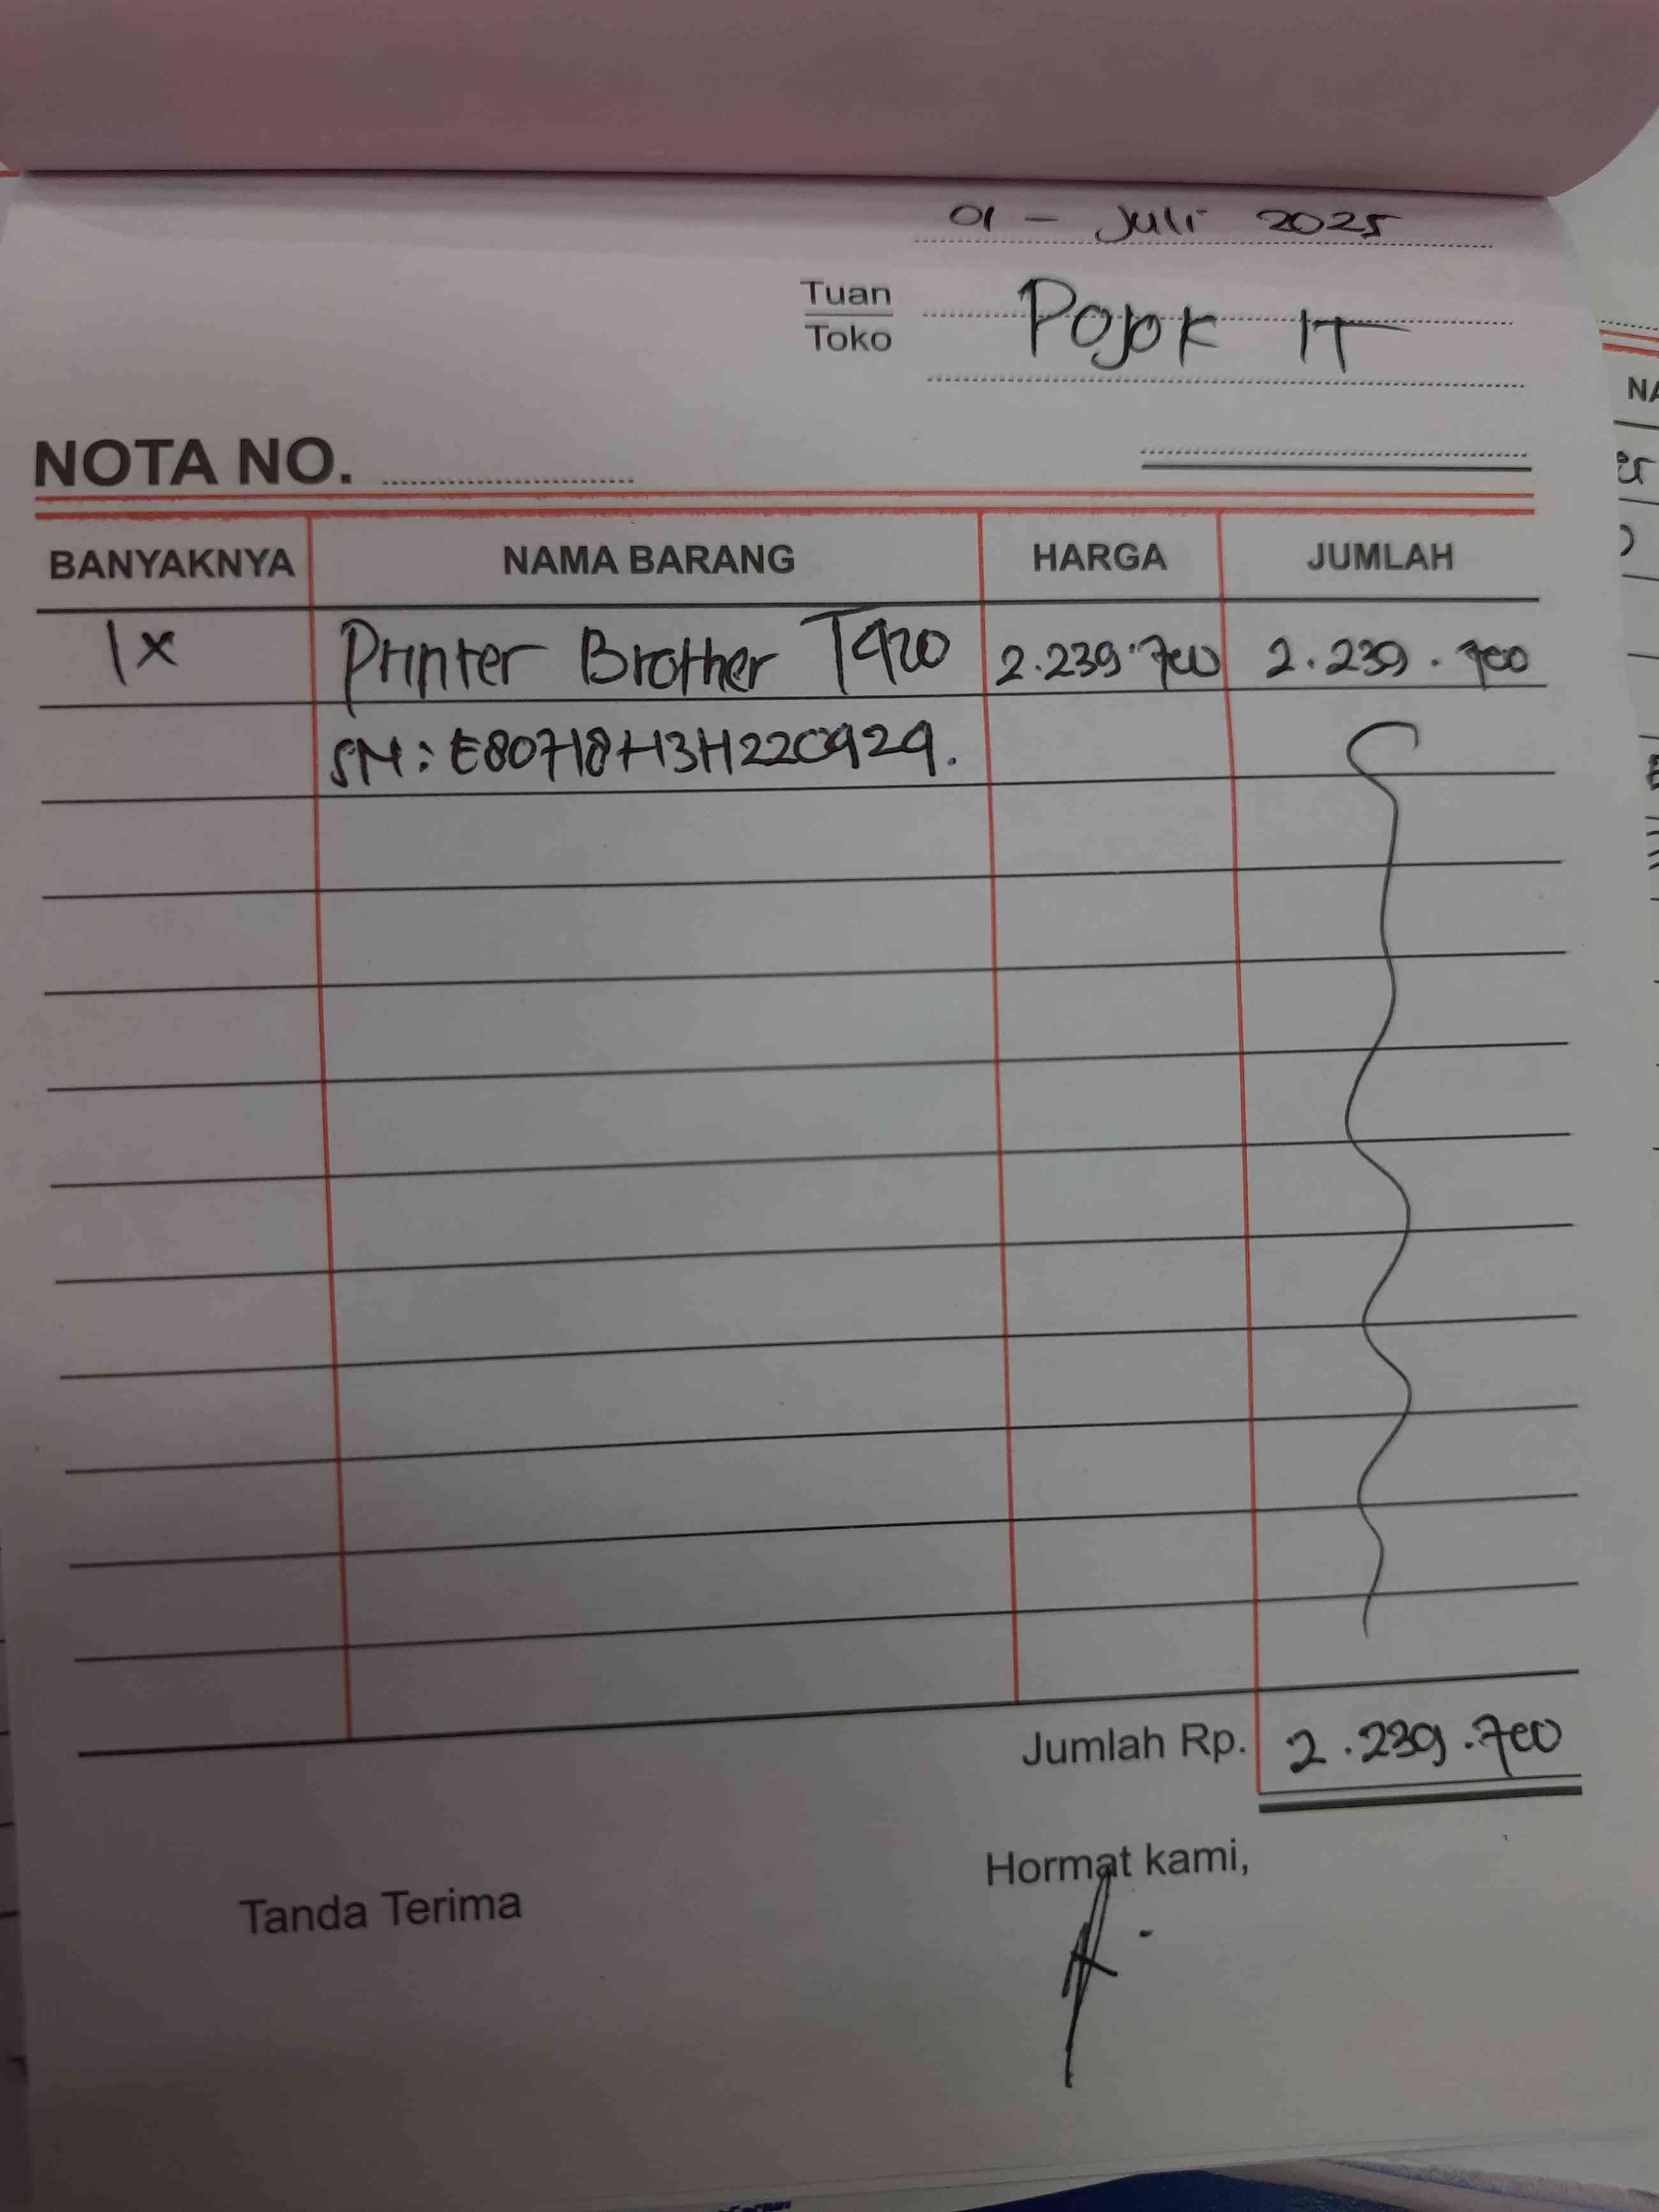 01 - Juli 2025
Tuan
Toko
Pojok IT
NOTA NO.
BANYAKNYA NAMA BARANG HARGA JUMLAH
1x Printer Brother T920 2.239.700 2.239.700
SN: E80718H3H220929.
Jumlah Rp. 2.239.700
Hormat kami,
Tanda Terima